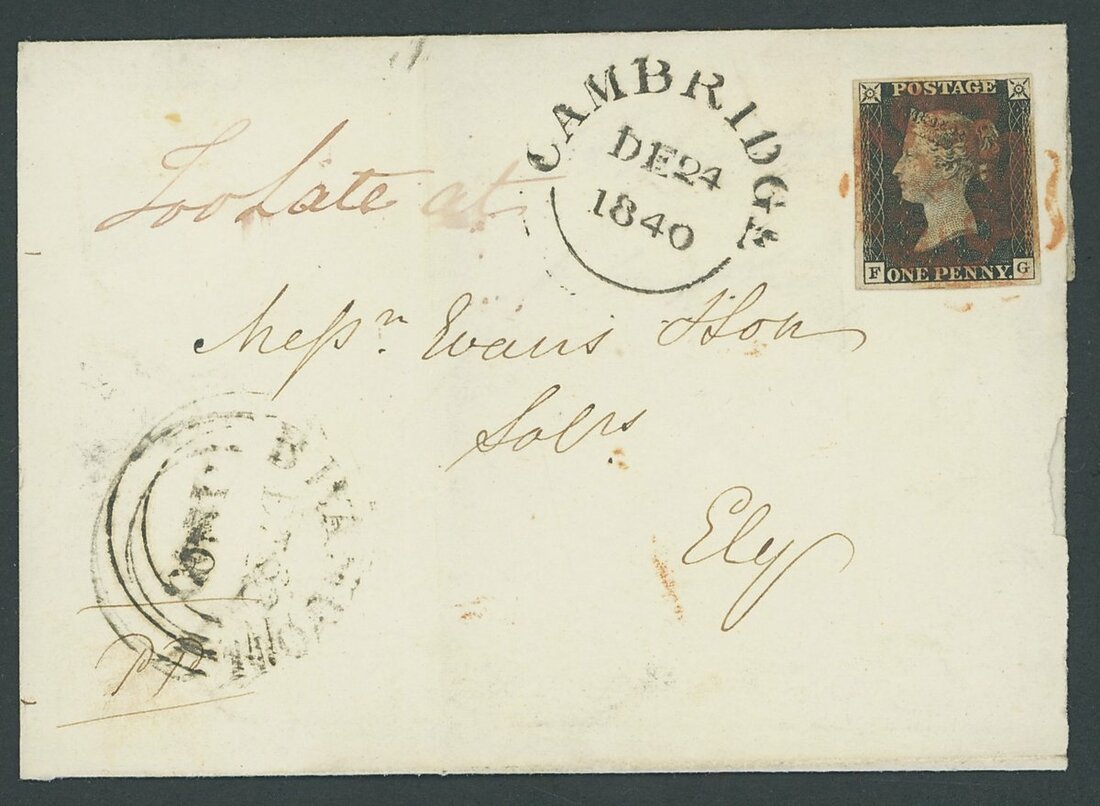 POSTAGE
F ONE PENNY. G
CAMBRIDGE
DE 24
1840
Too Late at
Messrs. Evans & Son
Solrs
Ely